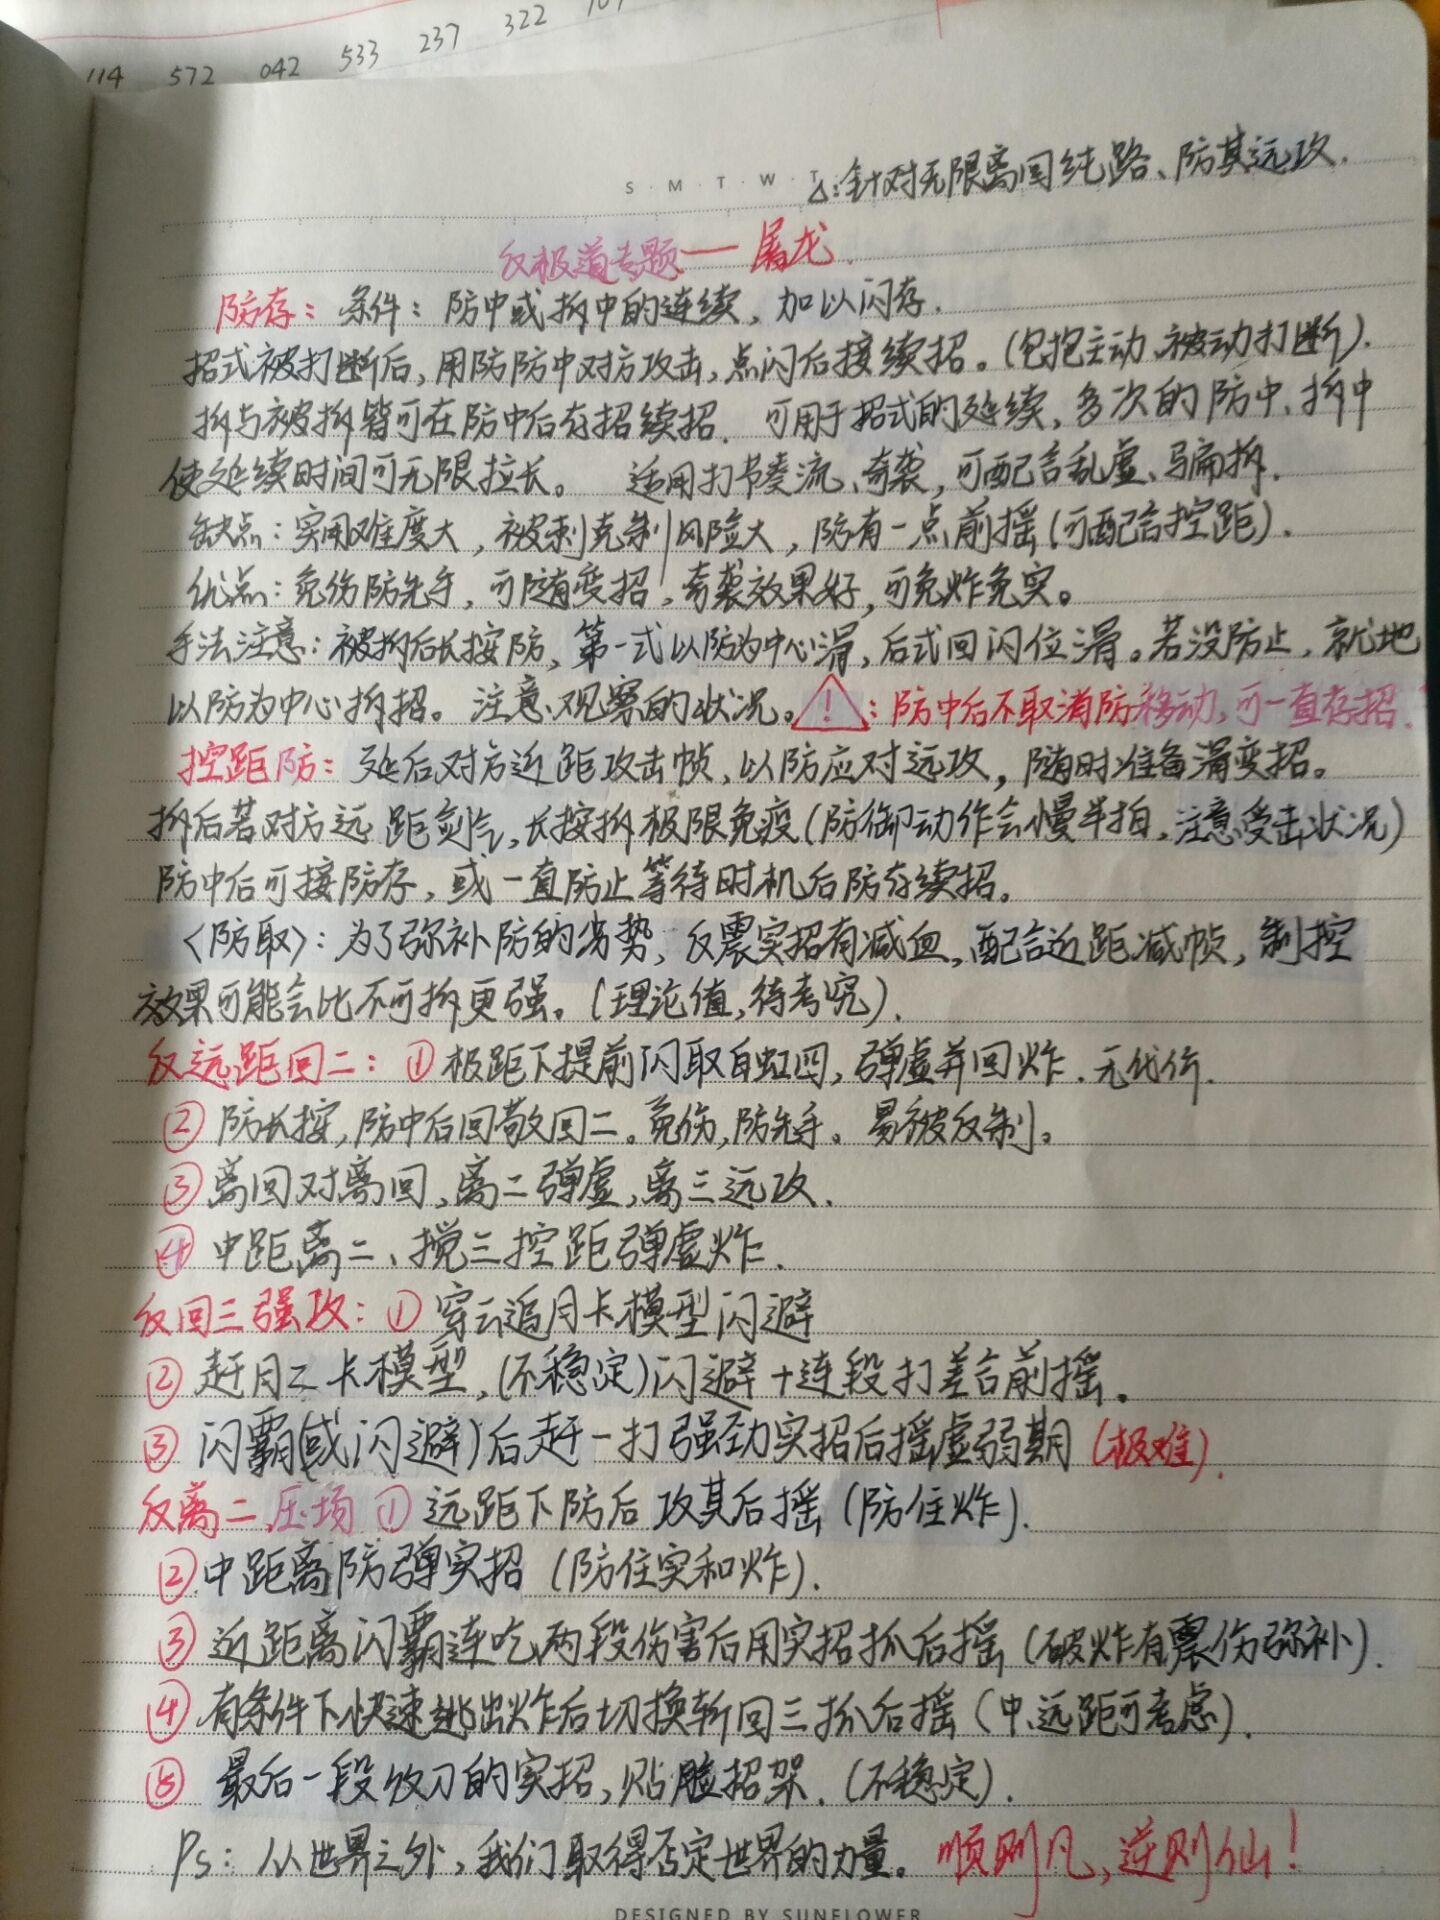 114 572 042 533 237 322
S·M·T·W·T
△:针对无限离回纯路、防其远攻.
反极道专题——屠龙.
防存:条件:防中或拆中的连续,加以闪存.
招式被打断后,用防防中对方攻击,点闪后接续招。(包括主动、被动打断).
拆与被拆皆可在防中后存招续招.可用于招式的延续,多次的防中、拆中
使延续时间可无限拉长。 适用打节奏流、奇袭,可配合乱虚、骗拆.
缺点:实用难度大,被刺克制风险大,防有一点前摇(可配合控距).
优点:免伤防先手,可随变招,奇袭效果好,可免炸免实。
手法注意:被拆后长按防,第一式以防为中心滑,后式回闪位滑。若没防止,就地
以防为中心拆招。注意观察的状况。!:防中后不取消防移动,可一直存招.
控距防:延后对方近距攻击帧,以防应对远攻,随时准备滑变招。
拆后若对方远距剑气,长按拆极限免疫(防御动作会慢半拍,注意受击状况)
防中后可接防存,或一直防止等待时机后防存续招。
<防取>:为了弥补防的劣势,反震实招有减血,配合近距减帧,制控
效果可能会比不可拆更强。(理论值,待考究).
反远距回二:①极距下提前闪取白虹四,弹虚并回炸.无代价.
②防长按,防中后回敬回二。免伤,防先手。易被反制。
③离回对离回,离二弹虚,离三远攻.
④中距离二、搅三控距弹虚炸.
反回三强攻:①穿云追月卡模型闪避
②赶月二卡模型,(不稳定)闪避+连段打差合前摇。
③闪霸(或闪避)后赶一打强劲实招后摇虚弱期(极难).
反离二压场①远距下防后攻其后摇(防住炸).
②中距离防弹实招(防住实和炸).
③近距离闪霸连吃两段伤害后用实招抓后摇(破炸有震伤弥补).
④有条件下快速逃出炸后切换斩回三抓后摇(中、远距可考虑).
⑤最后一段收刀的实招,贴脸招架.(不稳定).
Ps:从世界之外,我们取得否定世界的力量。顺则凡,逆则仙!
DESIGNED BY SUNFLOWER